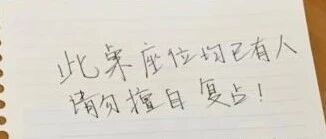 此桌座位均已有人
请勿擅自复占！